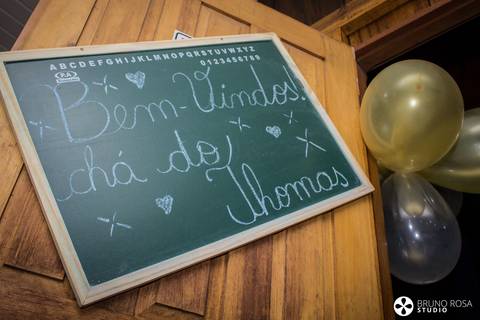 ABCDEFGHIJKLMNOPQRSTUVWXYZ
0123456789
Bem-Vindos!
chá do
Thomas
BRUNO ROSA
STUDIO